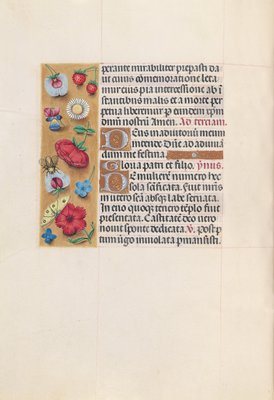 perante mirabiliter pie pasti da
ut eius co͞memoratione leta
mur eius pia intercessione ab i͞
stantibus malis et a morte per
petua liberemur P eundem xp͞m
dn͞m nostru͞ Amen. Ad terciam.
DEus in adiutoriu͞ meum
intende. Dn͞e ad adiuua͞
dum me festina
Gloria patri et filio. ymnus.
mulieru͞ numero
in utero sed absq͞z labe seruata.
In eno quoq͞z tenero te͞plo fuit
presentata. Castitate͞ deo vero
nouit sponte dedicata. V. post p
tum v͞go inuiolata p͞man sisti.